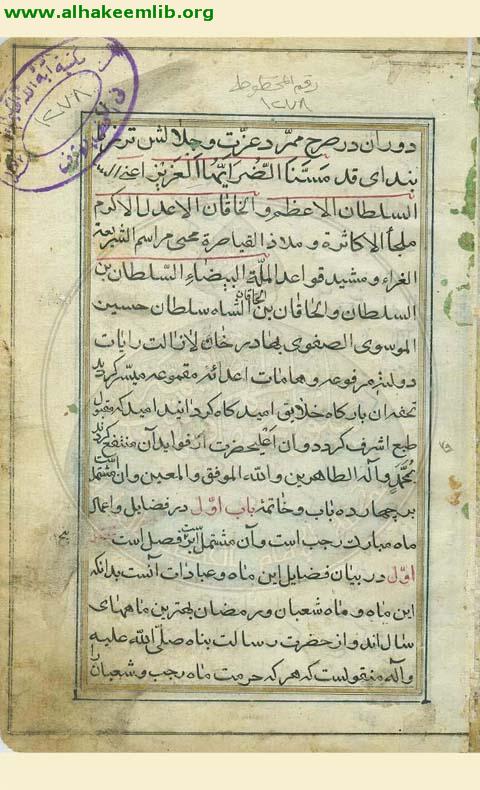 www.alhakeemlib.org
رقم المخطوطه
١٢٧٨
مكتبة آية الله
١٢٧٨
دوران در صرح ممرد عزت و جلالش
بندای قد مسنا الضر ایها العزیز
السلطان الاعظم و الخاقان الاعدل الاکرم
ملجأ الاکاثرة و ملاذ القیاصرة محیی مراسم الشریعة
الغراء و مشید قواعد الملة البیضاء السلطان بن
السلطان و الخاقان بن الخاقان الشاه سلطان حسین
الموسوی الصفوی بهادر خان لا زالت رایات
دولته مرفوعه و هامات اعدائه مقموعه میسر کردید
تحفه ان بارکاه خلایق امیدکاه کردانید امید که مقبول
طبع اشرف کردد و ان اعلیحضرت از فواید آن منتفع کردند
بمحمد و آله الطاهرین و الله الموفق و المعین و ان مشتمل است
بر چهارده باب و خاتمة باب اول در فضایل و اعمال
ماه مبارک رجب است و آن مشتمل بر فصل است
اول در بیان فضایل این ماه و عبادات آنست بدانکه
این ماه و ماه شعبان و رمضان بهترین ماههای
سال اند و از حضرت رسالت پناه صلی الله علیه
و آله منقولست که هر که حرمت ماه رجب و شعبان را